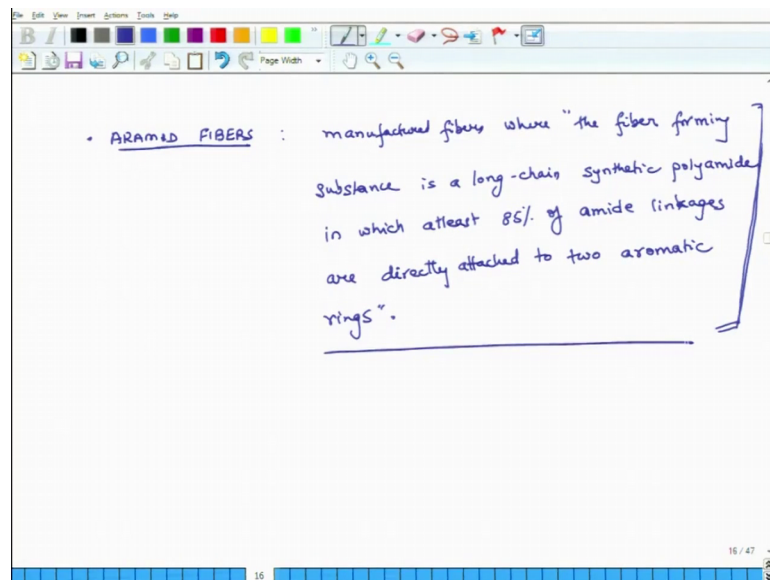 File Edit View Insert Actions Tools Help
B I
Page Width
• ARAMID FIBERS : manufactured fibers where "the fiber forming
substance is a long-chain synthetic polyamide
in which atleast 85% of amide linkages
are directly attached to two aromatic
rings".
16 / 47
16